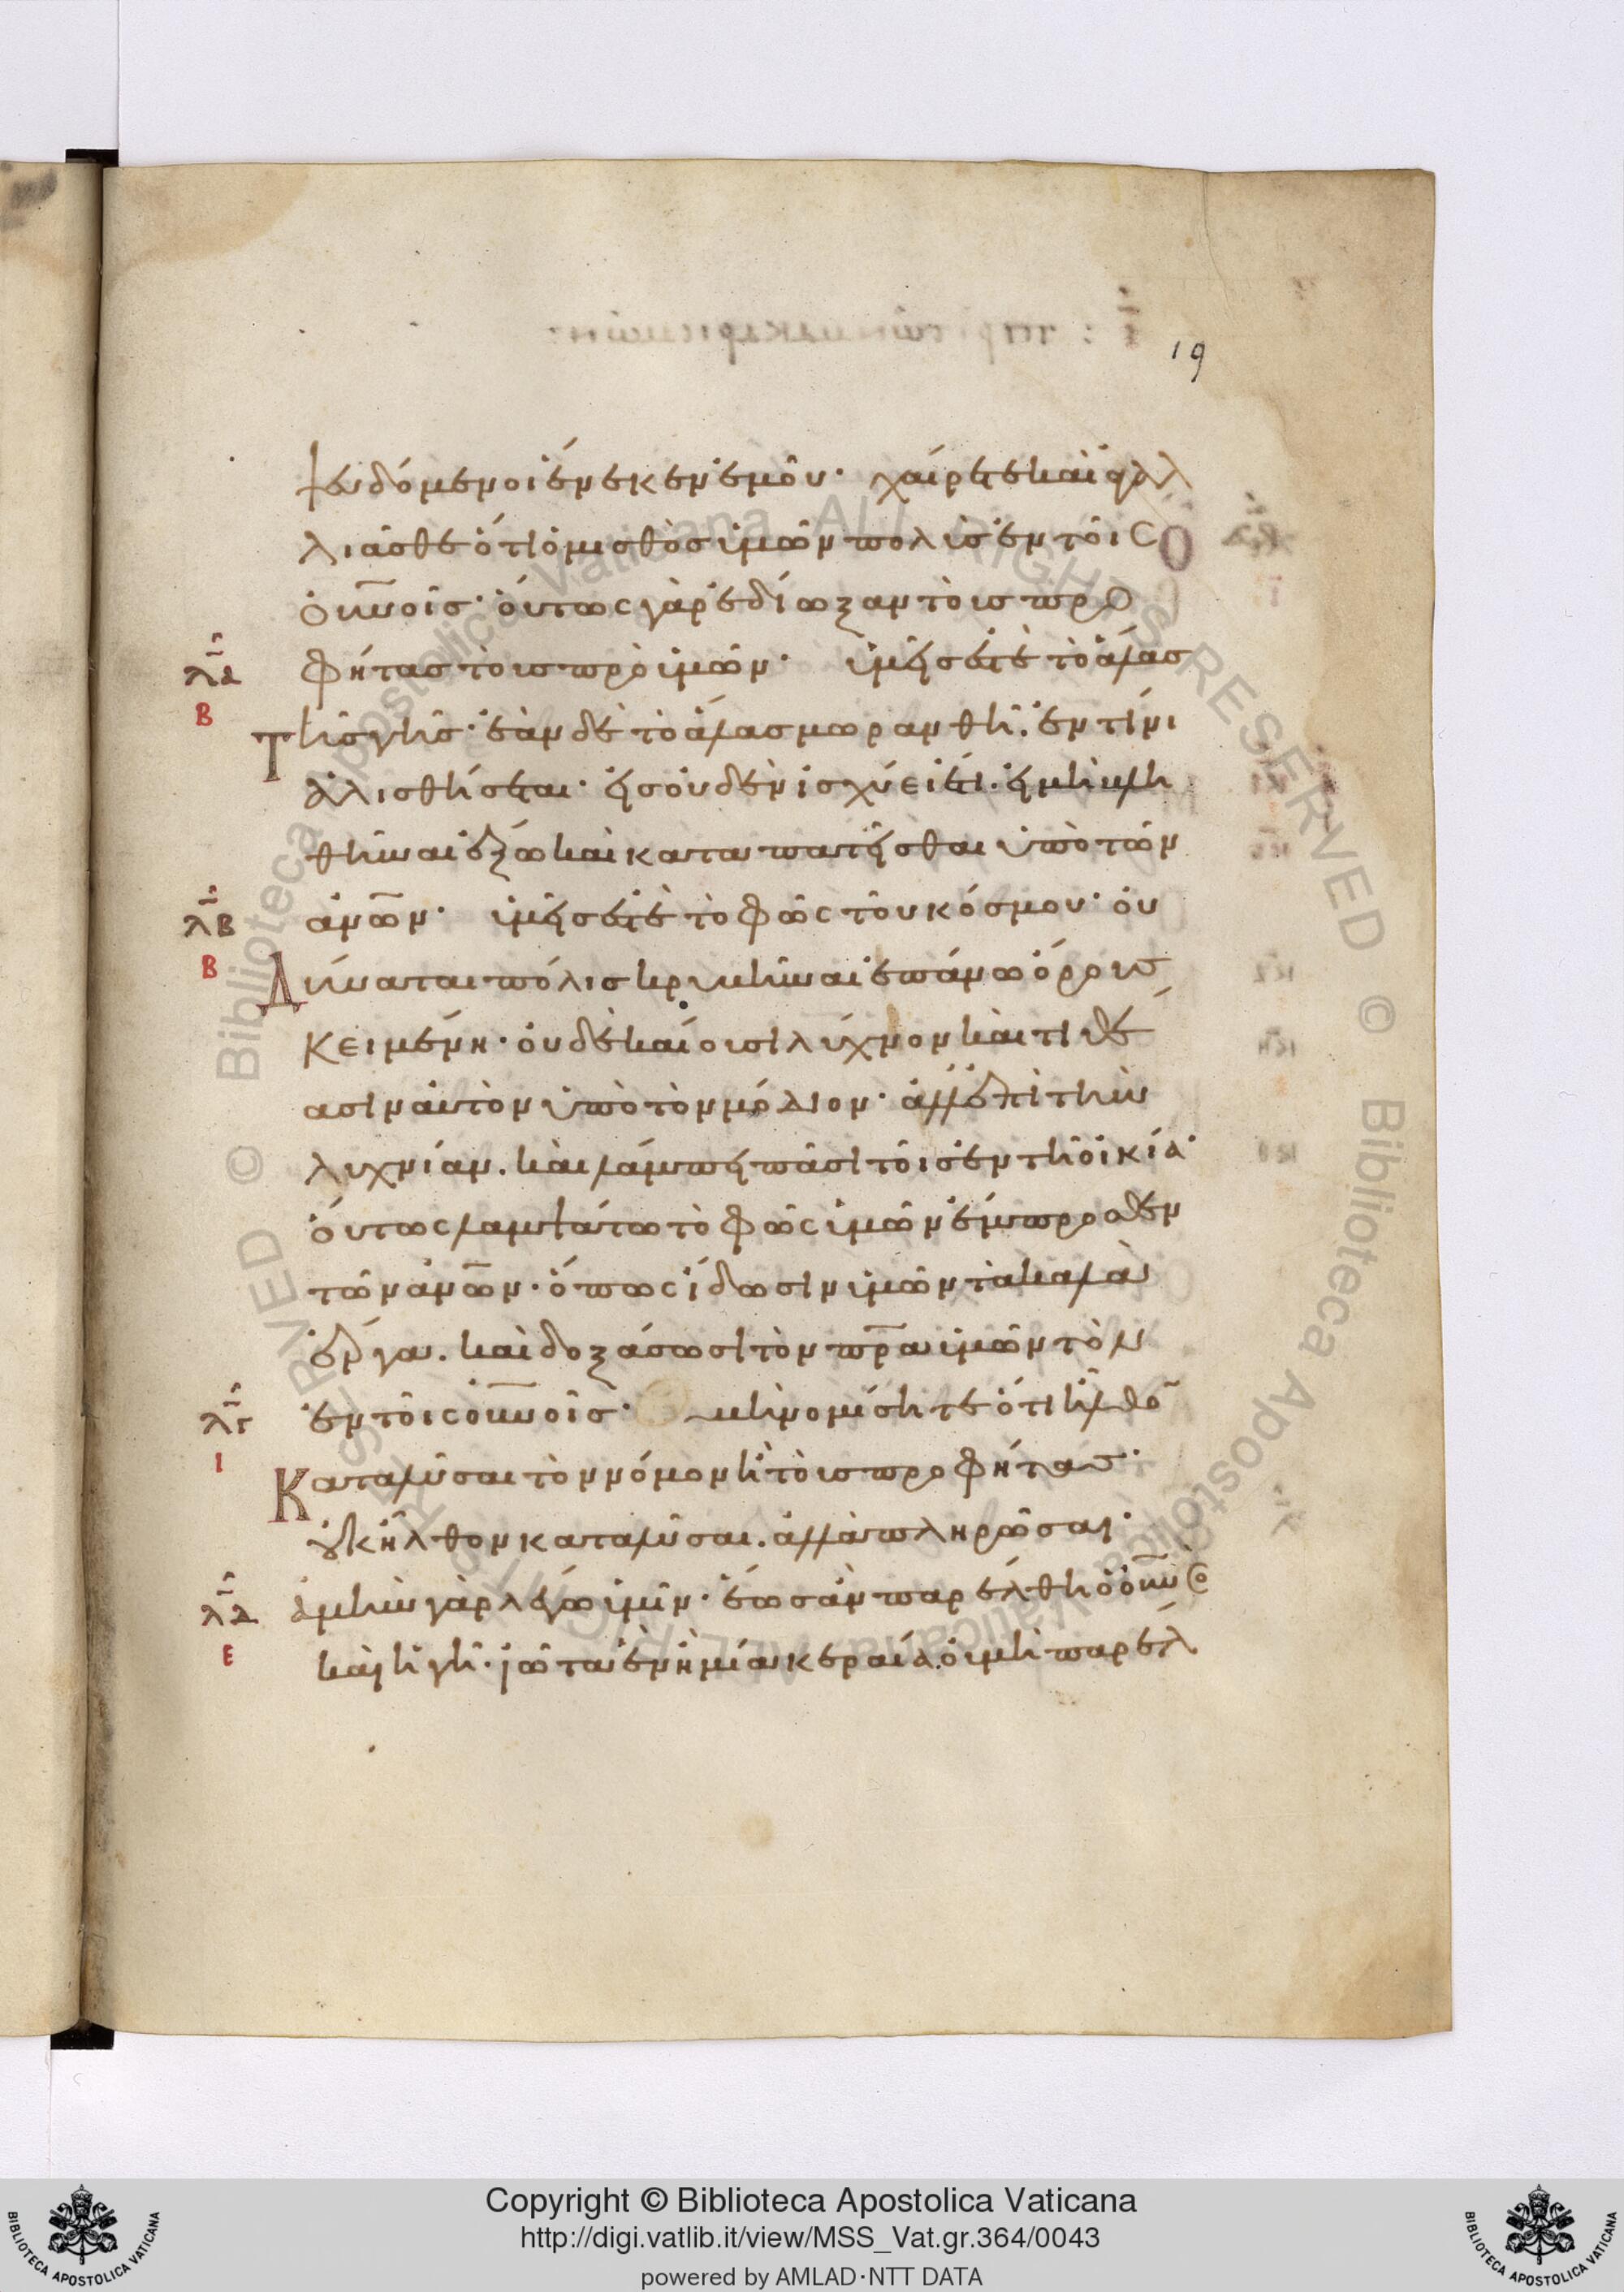 19
ψευδόμενοι ἕνεκεν ἐμοῦ· χαίρετε καὶ ἀγαλ
λιᾶσθε ὅτι ὁ μισθὸς ὑμῶν πολὺς ἐν τοῖς
οὐνοῖς· οὕτως γὰρ ἐδίωξαν τοὺς προ
φήτας τοὺς πρὸ ὑμῶν· ὑμεῖς ἐστὲ τὸ ἅλας
λα
Β
τῆς γῆς· ἐὰν δὲ τὸ ἅλας μωρανθῆ. ἐν τίνι
ἁλισθήσεται· εἰς οὐδὲν ἰσχύει ἔτι. εἰ μὴ βλη
θῆναι ἔξω καὶ καταπατεῖσθαι ὑπὸ τῶν
ἀνων· ὑμεῖς ἐστὲ τὸ φῶς τοῦ κόσμου· οὐ
λβ
Β
δύναται πόλις κρυβῆναι ἐπάνω ὄρους
κειμένη· οὐδὲ καίουσι λύχνον καὶ τιθέ
ασιν αὐτὸν ὑπὸ τὸν μόδιον· ἀλλ' ἐπὶ τὴν
λυχνίαν. καὶ λάμπει πᾶσι τοῖς ἐν τῆ οἰκία·
οὕτως λαμψάτω τὸ φῶς ὑμῶν ἔμπροσθεν
τῶν ἀνων· ὅπως ἴδωσιν ὑμῶν τὰ καλὰ
ἔργα. καὶ δοξάσωσι τὸν πρα ὑμῶν τὸν
ἐν τοῖς οὐνοῖς· μὴ νομίσητε ὅτι ἦλθον
λγ
Ι
καταλῦσαι τὸν νόμον ἢ τοὺς προφήτας·
οὐκ ἦλθον καταλῦσαι. ἀλλὰ πληρῶσαι·
ἀμὴν γὰρ λέγω ὑμῖν· ἕως ἂν παρέλθη ὁ οὐνος
λδ
Ε
καὶ ἡ γῆ· ἰῶτα ἓν ἢ μία κεραία. οὐ μὴ παρέλ
Copyright © Biblioteca Apostolica Vaticana
http://digi.vatlib.it/view/MSS_Vat.gr.364/0043
powered by AMLAD·NTT DATA
BIBLIOTECA APOSTOLICA VATICANA
BIBLIOTECA APOSTOLICA VATICANA